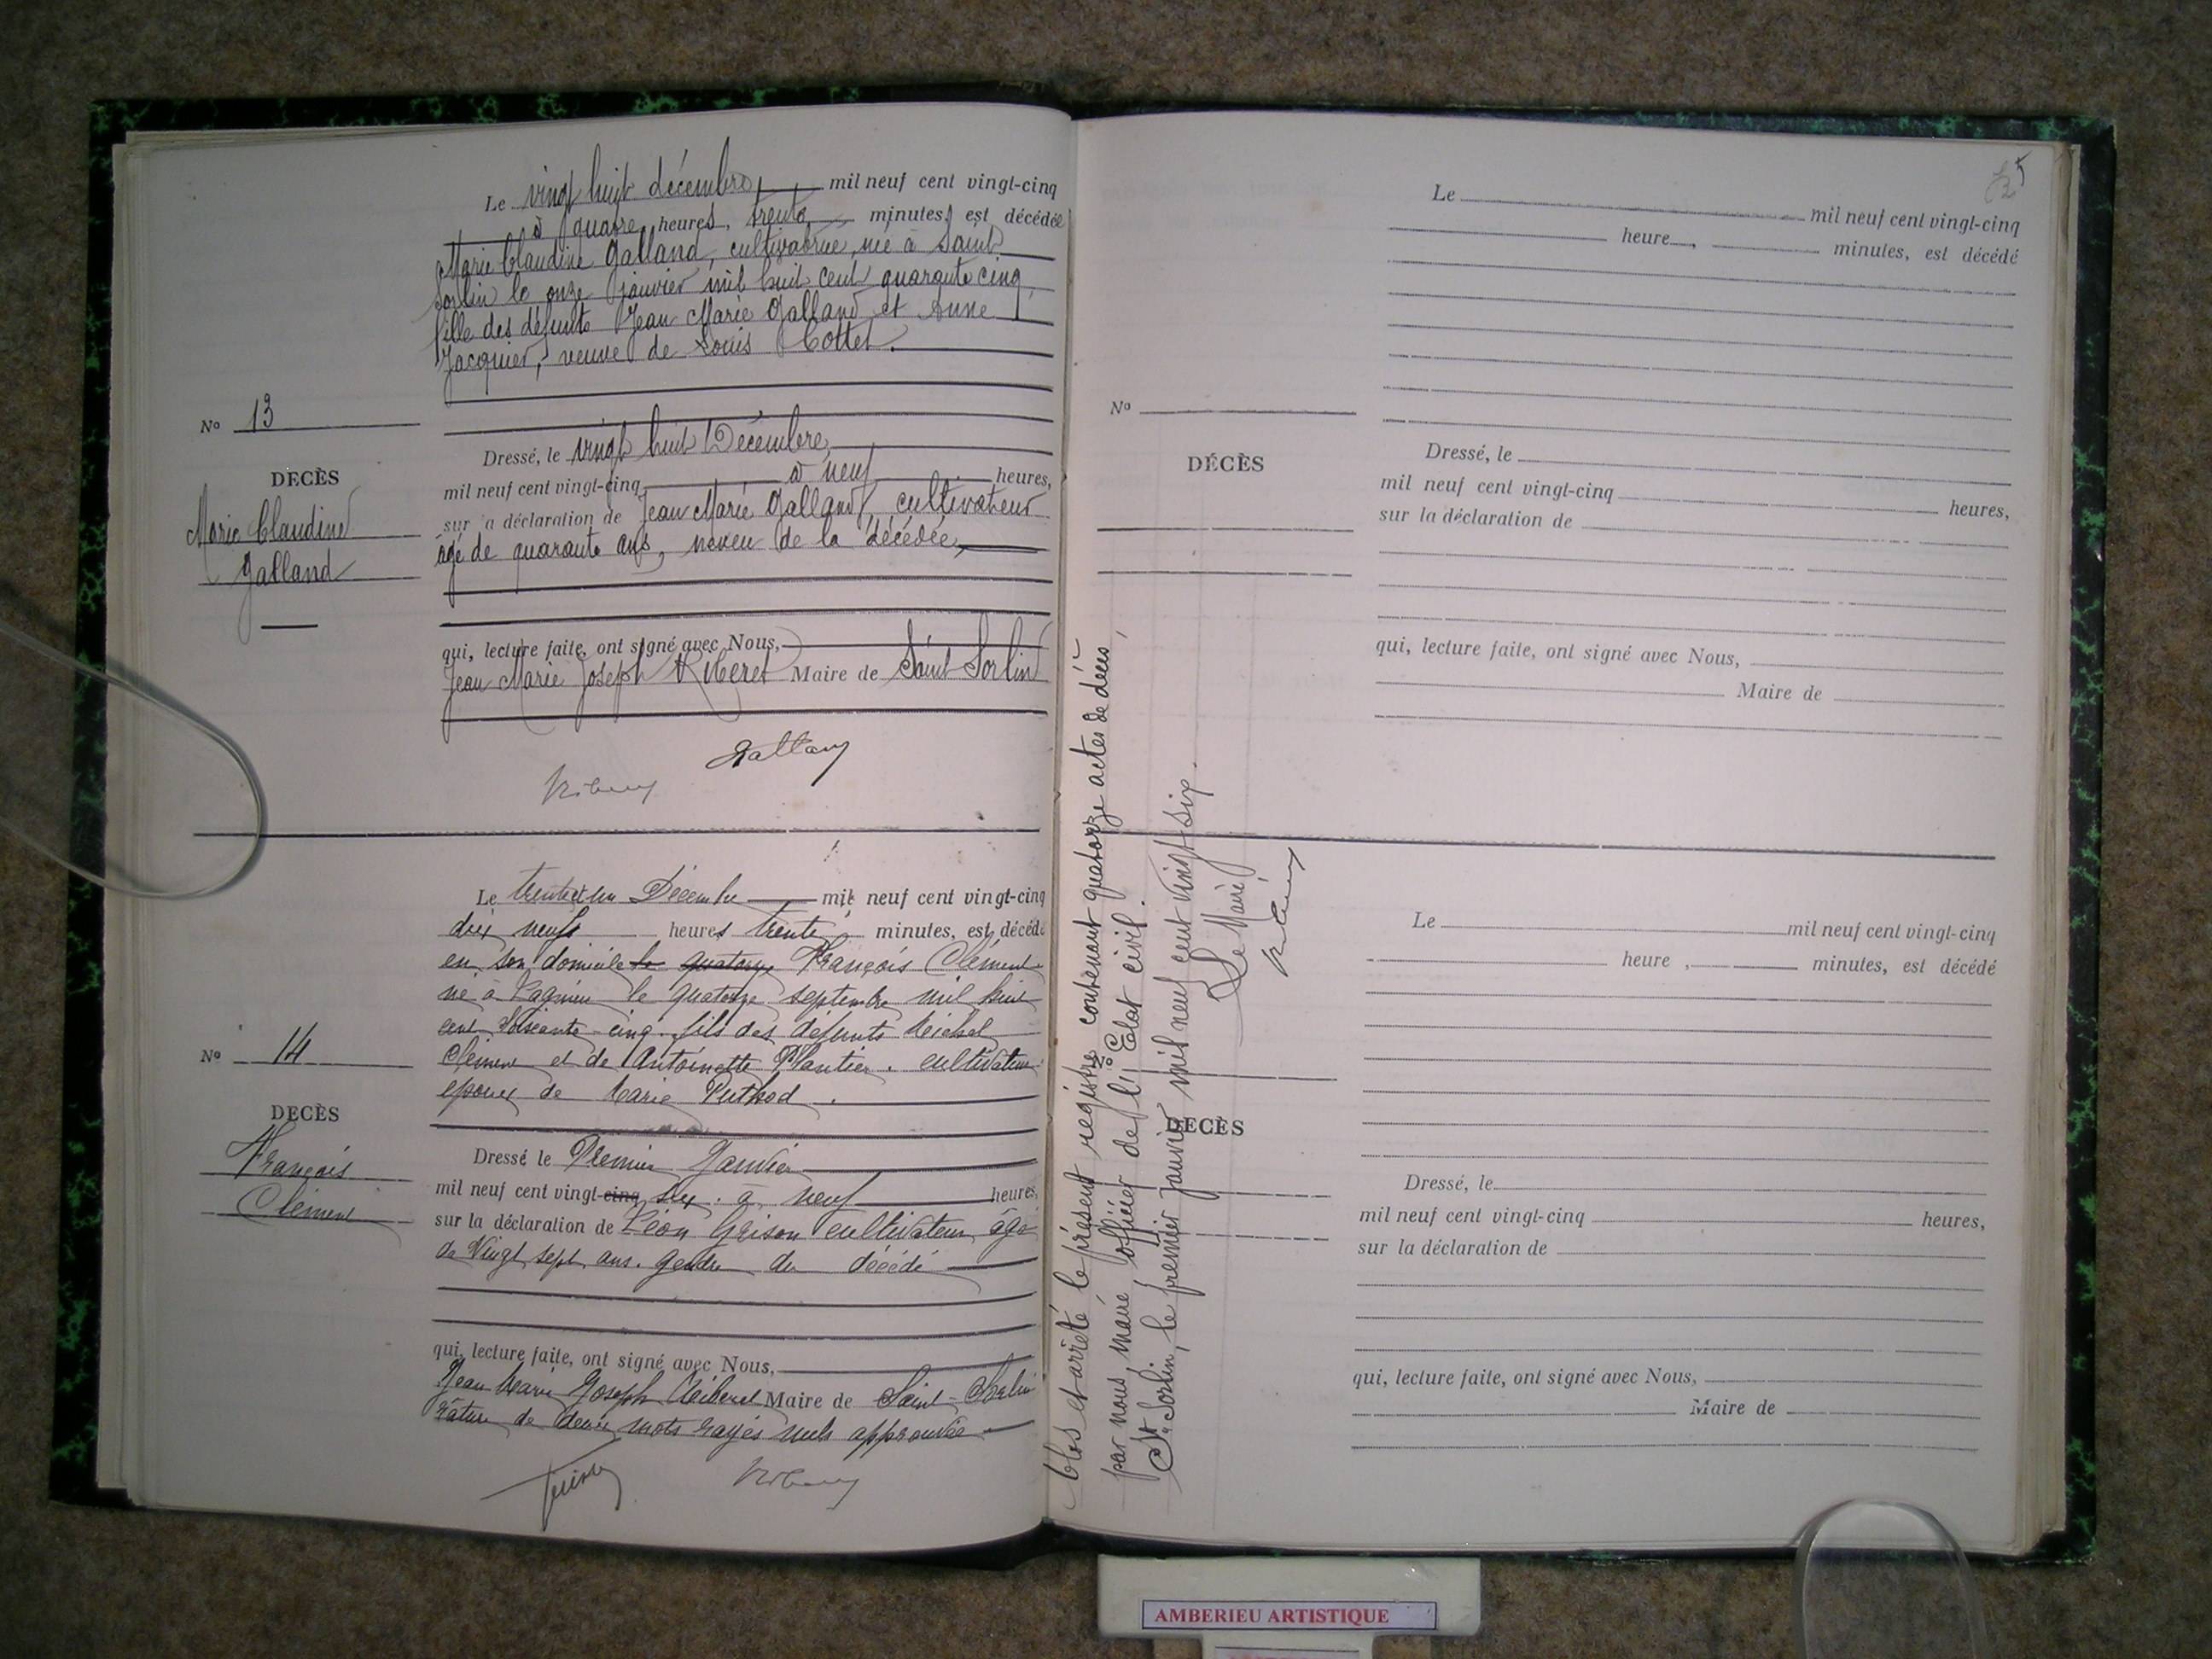 Le vingt huit décembre mil neuf cent vingt-cinq
à quatre heures, trente minutes, est décédée
Marie Claudine Galland, cultivatrice, née à Saint
Sorlin le onze janvier mil huit cent quarante cinq,
fille des défunts Jean Marie Galland et Anne
Jacquier, veuve de Louis Cottet.
No 13
DECÈS
Marie Claudine
Galland
Dressé, le vingt huit Décembre
mil neuf cent vingt-cinq à neuf heures,
sur la déclaration de Jean Marie Galland, cultivateur
âgé de quarante ans, neveu de la décédée,
qui, lecture faite, ont signé avec Nous,
Jean Marie Joseph Riberet Maire de Saint Sorlin
Galland
Le trente et un Décembre mil neuf cent vingt-cinq
dix neuf heures trente minutes, est décédé
en son domicile le quatorze François Clément
né à Lagnieu le quatorze septembre mil huit
cent soixante-cinq. fils des défunts Michel
Clément et de Antoinette Plantier. cultivateur
époux de Marie Puthod.
No 14
DECÈS
François
Clément
Dressé le Premier Janvier
mil neuf cent vingt-cinq six. à neuf heures,
sur la déclaration de Léon Grison cultivateur, âgé
de Vingt sept ans. gendre du décédé
qui, lecture faite, ont signé avec Nous,
Jean Marie Joseph Riberet Maire de Saint-Sorlin
rature de deux mots rayés nuls approuvée
Clos et arrêté le présent registre contenant quatorze actes de décès,
par nous, maire, officier de l'Etat civil.
St Sorlin, le premier janvier mil neuf cent vingt-six.
Le Maire
35
Le mil neuf cent vingt-cinq
heure , minutes, est décédé
No
DÉCÈS
Dressé, le
mil neuf cent vingt-cinq heures,
sur la déclaration de
qui, lecture faite, ont signé avec Nous,
Maire de
Le mil neuf cent vingt-cinq
heure , minutes, est décédé
DECÈS
Dressé, le
mil neuf cent vingt-cinq heures,
sur la déclaration de
qui, lecture faite, ont signé avec Nous,
Maire de
AMBERIEU ARTISTIQUE